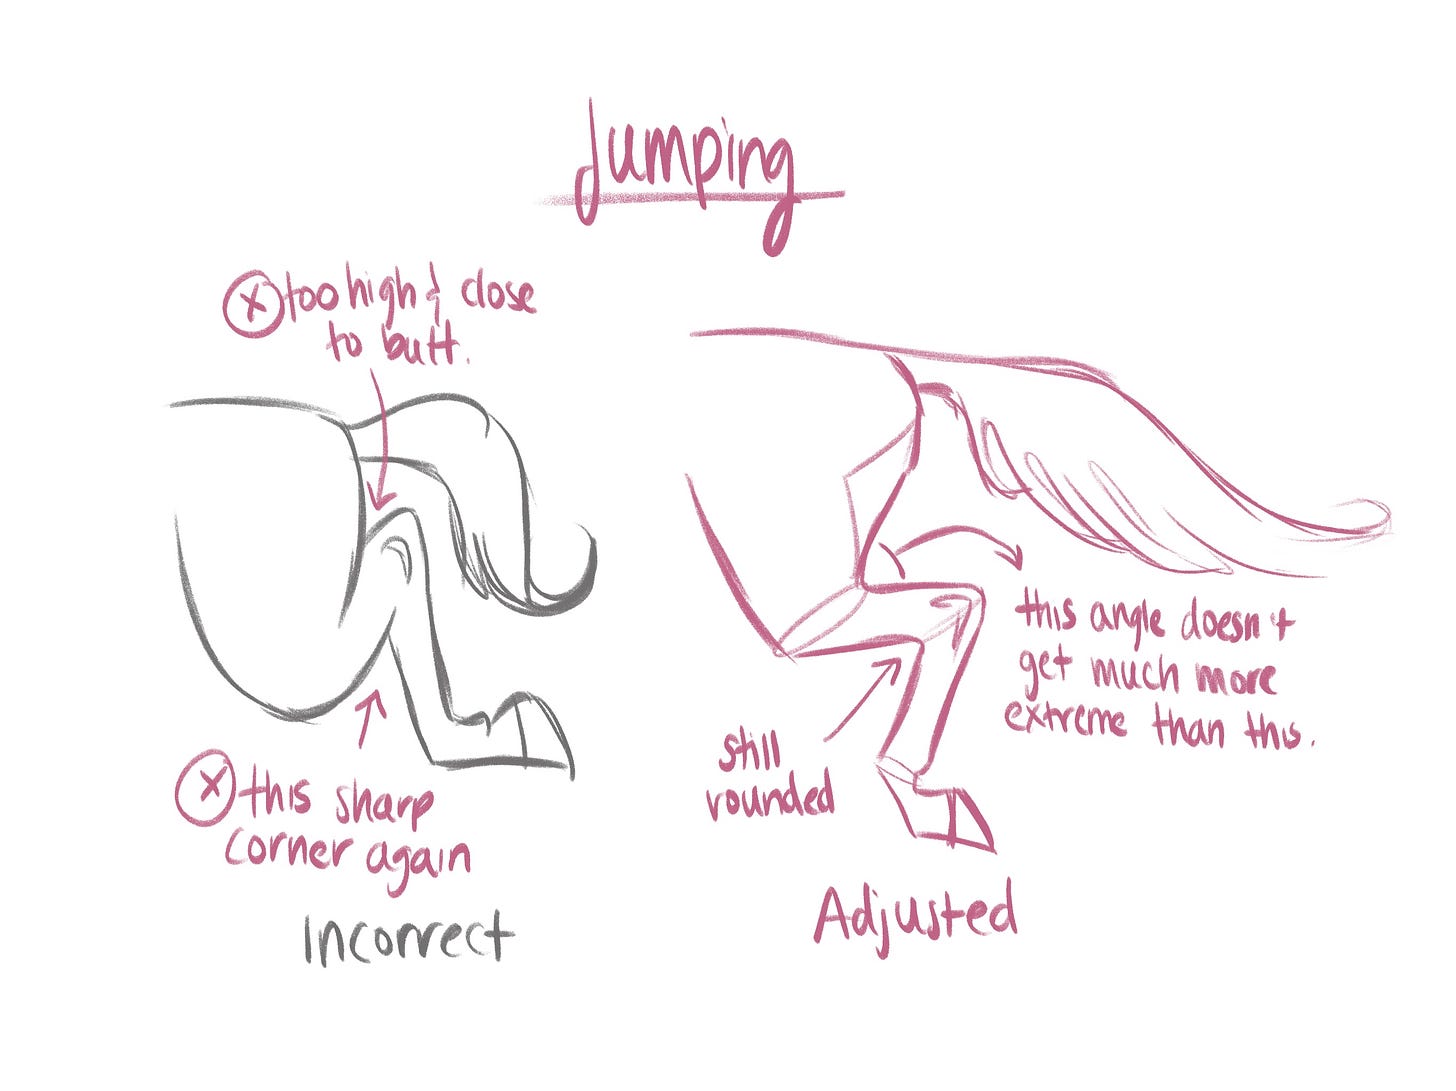 Jumping
X too high & close
to butt.
this angle doesn't
get much more
extreme than this.
still
rounded
X this sharp
corner again
Incorrect
Adjusted